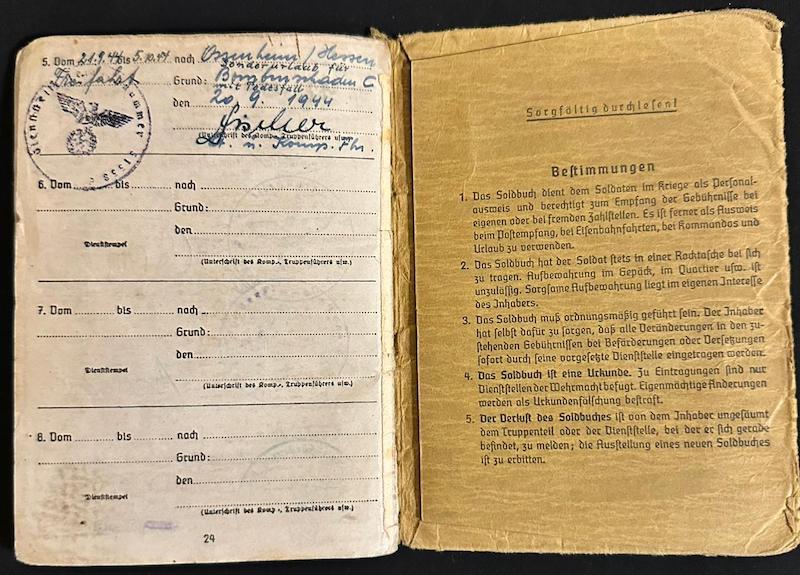 5. Vom 21.9.44 bis 5.10.44 nach Ossenheim/Hessen
Sonderurlaub für
Grund: Bombenschaden C
mit Todesfall
den 20. 9. 1944
Fischer
(Unterschrift des Komp.-, Truppenführers usw.)
Lt. u. Komp. Fhr.
Dienststelle
6. Vom bis nach
Grund:
den
Dienststempel
(Unterschrift des Komp.-, Truppenführers usw.)
7. Vom bis nach
Grund:
den
Dienststempel
(Unterschrift des Komp.-, Truppenführers usw.)
8. Vom bis nach
Grund:
den
Dienststempel
(Unterschrift des Komp.-, Truppenführers usw.)
24
Sorgfältig durchlesen!
Bestimmungen
1. Das Soldbuch dient dem Soldaten im Kriege als Personal-
ausweis und berechtigt zum Empfang der Gebührnisse bei
eigenen oder bei fremden Zahlstellen. Es ist ferner als Ausweis
beim Postempfang, bei Eisenbahnfahrten, bei Kommandos und
Urlaub zu verwenden.
2. Das Soldbuch hat der Soldat stets in einer Rocktasche bei sich
zu tragen. Aufbewahrung im Gepäck, im Quartier usw. ist
unzulässig. Sorgsame Aufbewahrung liegt im eigenen Interesse
des Inhabers.
3. Das Soldbuch muß ordnungsmäßig geführt sein. Der Inhaber
hat selbst dafür zu sorgen, daß alle Veränderungen in den zu-
stehenden Gebührnissen bei Beförderungen oder Versetzungen
sofort durch seine vorgesetzte Dienststelle eingetragen werden.
4. Das Soldbuch ist eine Urkunde. Zu Eintragungen sind nur
Dienststellen der Wehrmacht befugt. Eigenmächtige Änderungen
werden als Urkundenfälschung bestraft.
5. Der Verlust des Soldbuches ist von dem Inhaber ungesäumt
dem Truppenteil oder der Dienststelle, bei der er sich gerade
befindet, zu melden; die Ausstellung eines neuen Soldbuches
ist zu erbitten.